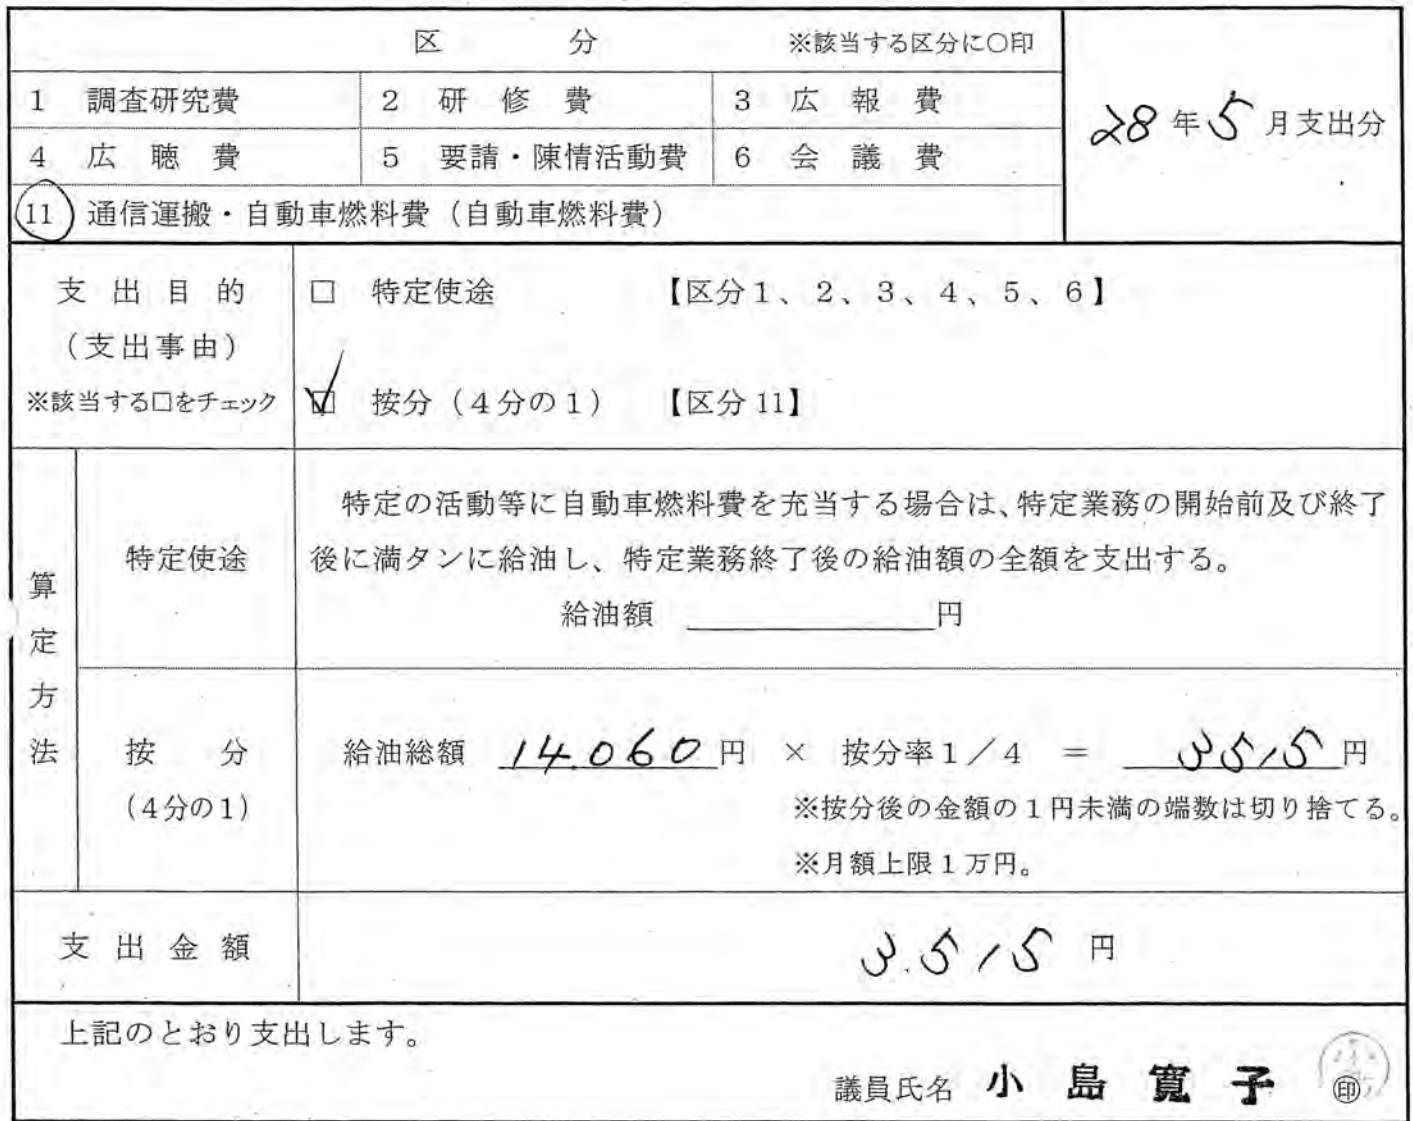 区 分 ※該当する区分に○印
28年5月支出分
1 調査研究費 2 研修費 3 広報費
4 広聴費 5 要請・陳情活動費 6 会議費
11 通信運搬・自動車燃料費(自動車燃料費)
支出目的
(支出事由)
※該当する□をチェック
□ 特定使途 【区分1、2、3、4、5、6】
☑ 按分(4分の1) 【区分11】
算定方法
特定使途
特定の活動等に自動車燃料費を充当する場合は、特定業務の開始前及び終了
後に満タンに給油し、特定業務終了後の給油額の全額を支出する。
給油額 円
按分
(4分の1)
給油総額 14.060円 × 按分率1/4 = 3515円
※按分後の金額の1円未満の端数は切り捨てる。
※月額上限1万円。
支出金額 3.515 円
上記のとおり支出します。
議員氏名 小島寛子 ㊞